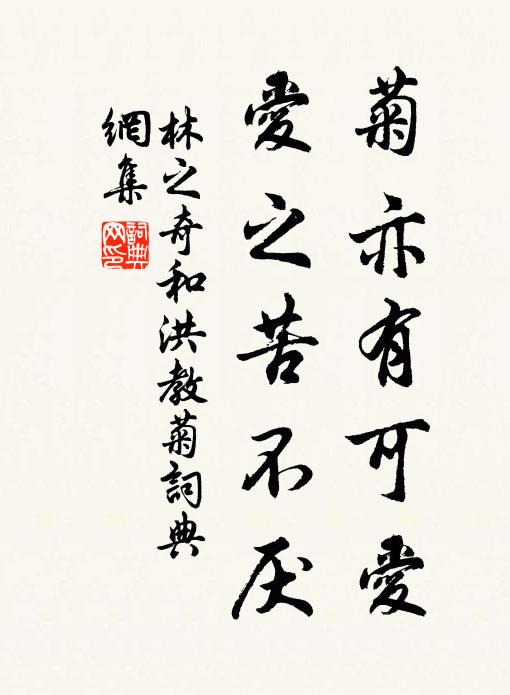 菊亦有可愛
愛之苦不厌
林之奇和洪教菊詞典
網集
詞典网印